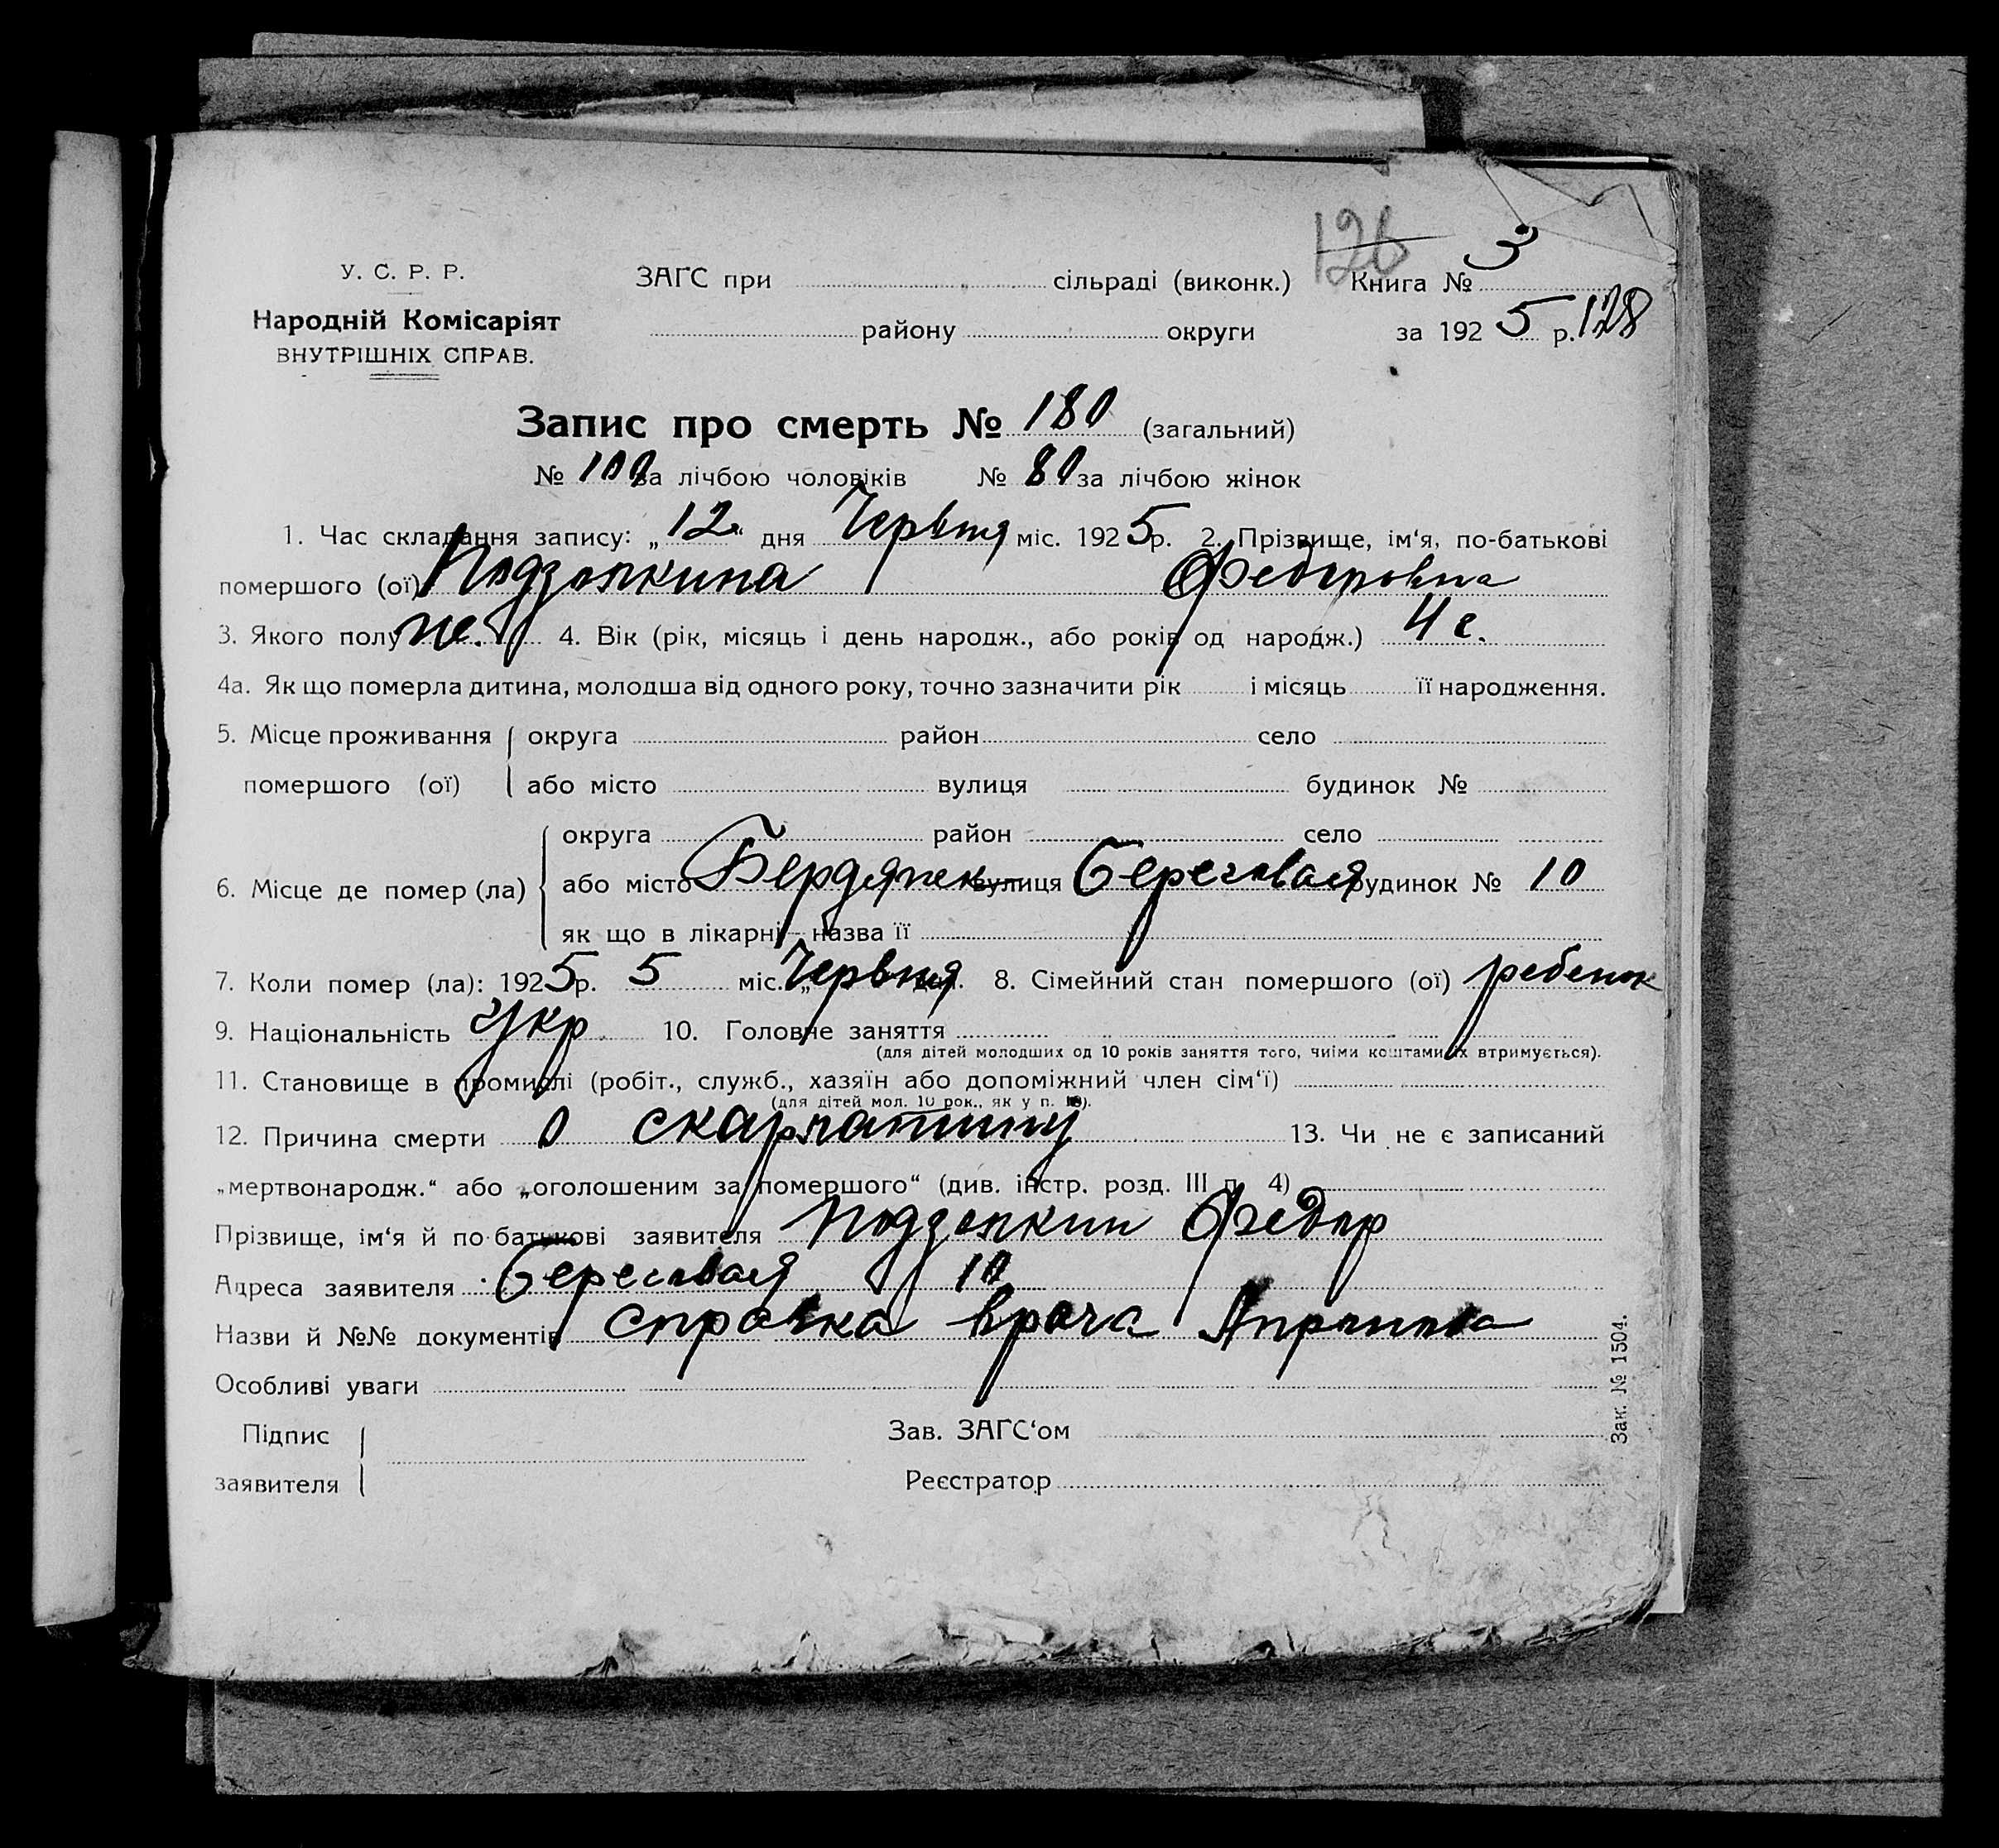 126
У. С. Р. Р. ЗАГС при сільраді (виконк.) Книга № 3
Народній Комісаріят району округи за 1925 р. 128
ВНУТРІШНІХ СПРАВ.
Запис про смерть № 180 (загальний)
№ 100 за лічбою чоловіків № 80 за лічбою жінок
1. Час складання запису: „12“ дня Червня міс. 1925р. 2. Прізвище, ім‘я, по-батькові
помершого (ої) Федоровна
3. Якого полу 4. Вік (рік, місяць і день народж., або років од народж.) 4 г.
4а. Як що померла дитина, молодша від одного року, точно зазначити рік і місяць її народження.
5. Місце проживання округа район село
помершого (ої) або місто вулиця будинок №
округа район село
6. Місце де помер (ла) або місто Бердянск вулиця Береговая будинок № 10
як що в лікарні – назва її
7. Коли помер (ла): 1925р. 5 міс. „Червня 8. Сімейний стан помершого (ої) ребенок
9. Національність Укр. 10. Головне заняття
(для дітей молодших од 10 років заняття того, чиїми коштами їх втримується).
11. Становище в промислі (робіт., служб., хазяїн або допоміжний член сім‘ї)
(для дітей мол. 10 рок., як у п. 10).
12. Причина смерти скарлатину 13. Чи не є записаний
„мертвонародж.“ або „оголошеним за помершого“ (див. інстр. розд. III п. 4)
Прізвище, ім‘я й по-батькові заявителя Федор
Адреса заявителя Береговая 10
Назви й №№ документів справка врача
Особливі уваги
Підпис Зав. ЗАГС‘ом
заявителя Реєстратор
Зак. № 1504.